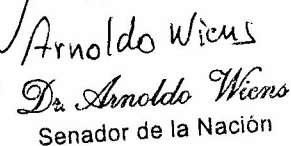 Arnoldo Wiens
Dr. Arnoldo Wiens
Senador de la Nación